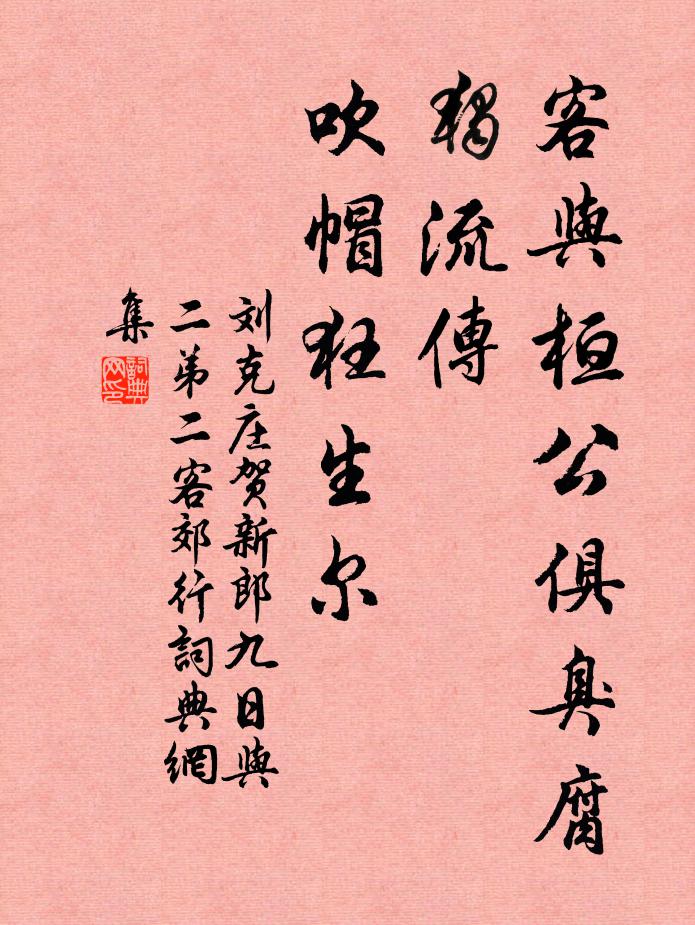 客與桓公俱臭腐
獨流傳
吹帽狂生尔
刘克庄贺新郎九日與
二弟二客郊行詞典網
集
詞典
网印